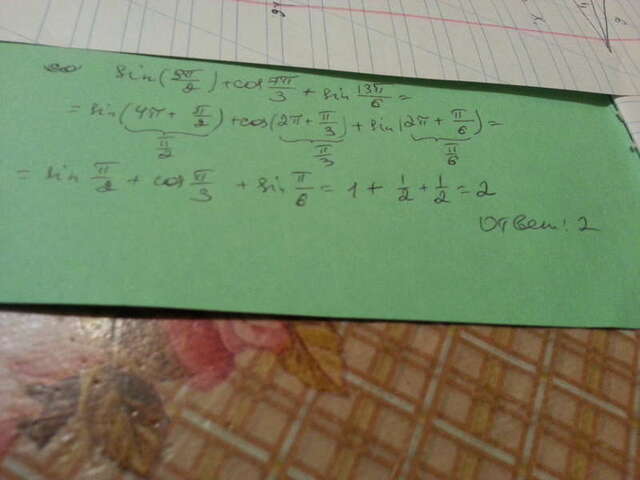 sin(9π/2) + cos 7π/3 + sin 13π/6 =
= sin(4π + π/2) + cos(2π + π/3) + sin(2π + π/6) =
π/2 π/3 π/6
= sin π/2 + cos π/3 + sin π/6 = 1 + 1/2 + 1/2 = 2
Ответ: 2